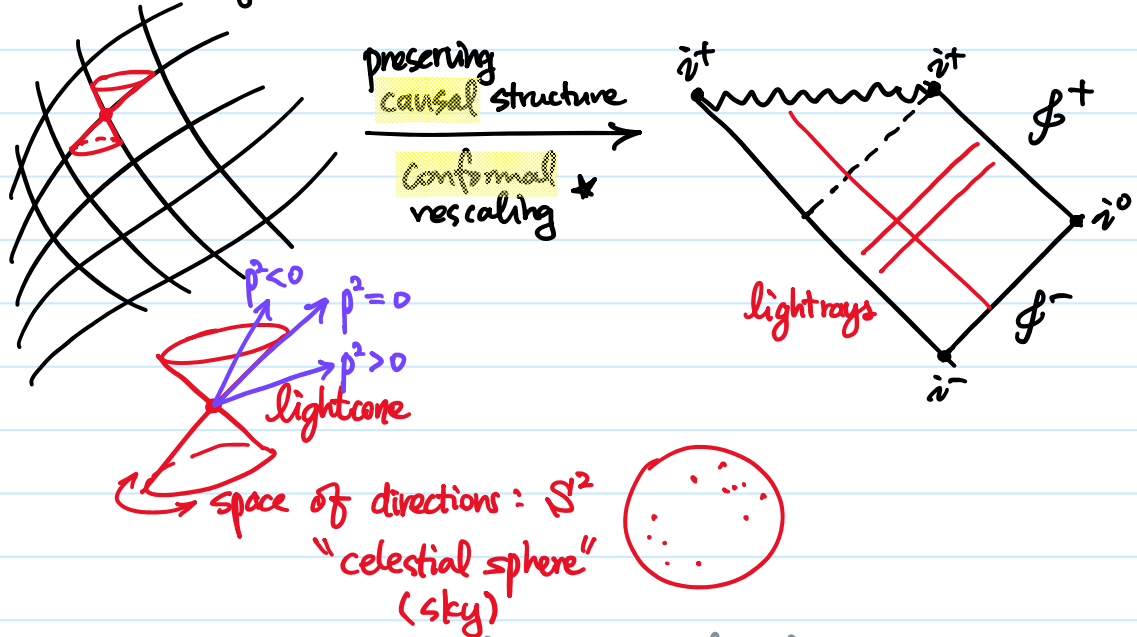 preserving
causal structure
conformal
rescaling ★
i⁺
i⁺
𝓘⁺
i⁰
𝓘⁻
i⁻
lightrays
p²<0
p²=0
p²>0
lightcone
space of directions : S²
"celestial sphere"
(sky)